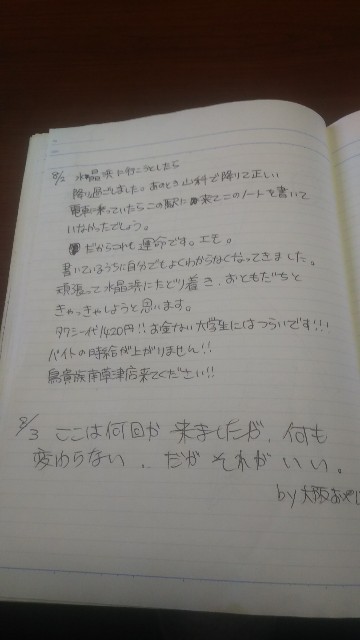 8/2 水晶浜に行こうとしたら
降り過ごしました。あのとき山科で降りて正しい
電車に乗っていたらこの駅に来てこのノートを書いて
いなかったでしょう。
だからこれも運命です。エモ。
書いているうちに自分でもよくわからなくなってきました。
頑張って水晶浜にたどり着き、おともだちと
きゃっきゃしようと思います。
タクシー代1420円!!お金ない大学生にはつらいです!!!
バイトの時給が上がりません!!
鳥貴族南草津店来てください!!
8/3 ここは何回か来ましたが、何も
変わらない、だがそれがいい。
by 大阪おやじ